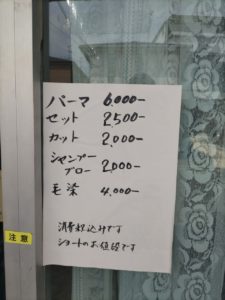 パーマ 6,000-
セット 2500-
カット 2,000-
シャンプー
ブロー 2,000-
毛染 4,000-
消費税込みです
ショートのお値段です
注意